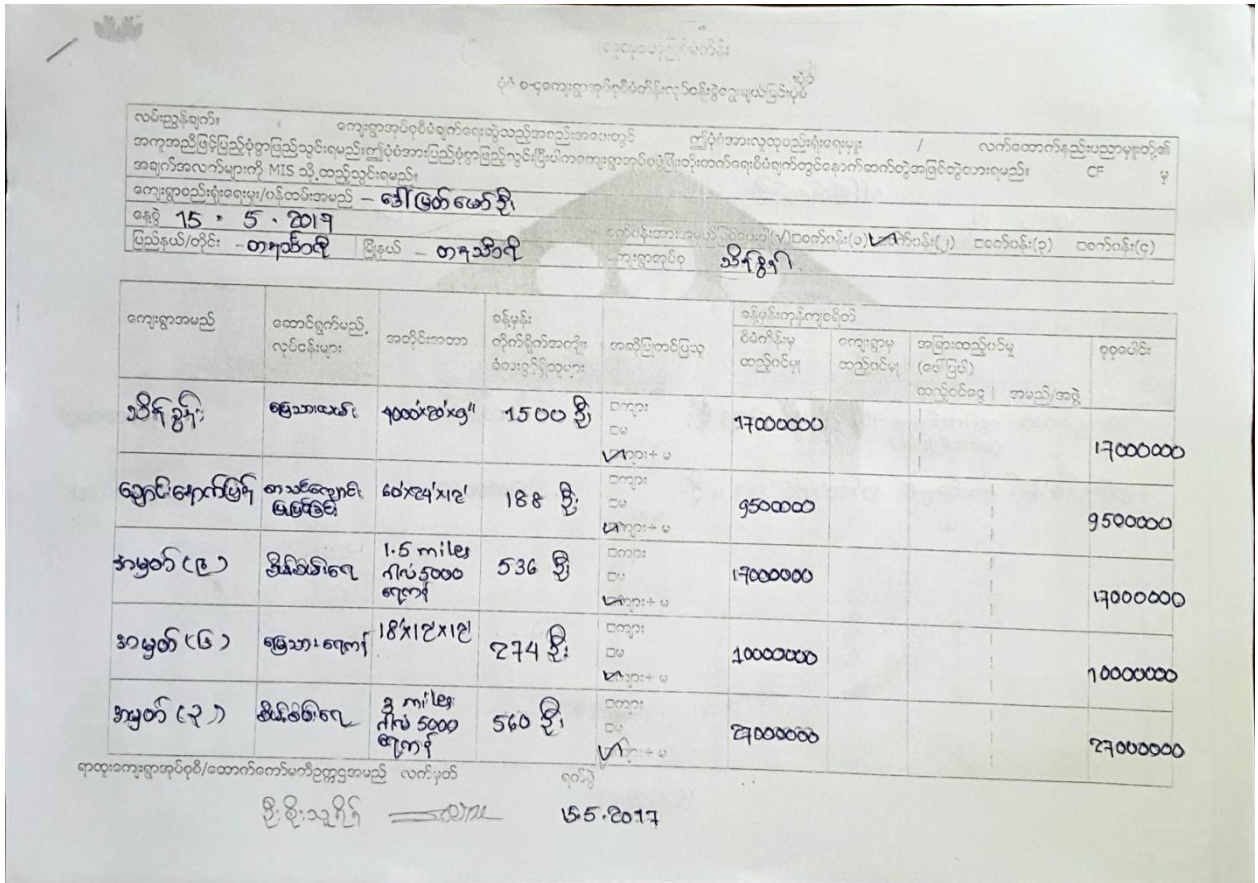 ပုံစံ စ-၄ကျေးရွာအုပ်စုစီမံကိန်းလုပ်ငန်းခွဲရွေးချယ်ခြင်းပုံစံ
လမ်းညွှန်ချက်။ ကျေးရွာအုပ်စုစီမံချက်ရေးဆွဲသည့်အစည်းအဝေးတွင် ဤပုံစံအားလူထုစည်းရုံးရေးမှူး / လက်ထောက်နည်းပညာမှူးတို့၏
အကူအညီဖြင့်ပြည့်စုံစွာဖြည့်သွင်းရမည်။ဤပုံစံအားပြည့်စုံစွာဖြည့်သွင်းပြီးပါကကျေးရွာအုပ်စုဖွံ့ဖြိုးတိုးတက်ရေးစီမံချက်တွင်နောက်ဆက်တွဲအဖြစ်တွဲထားရမည်။ CF မှ
အချက်အလက်များကို MIS သို့ထည့်သွင်းရမည်။
ကျေးရွာစည်းရုံးရေးမှူး/ဝန်ထမ်းအမည် – ဒေါ်မြတ်မော်ဦး
နေ့စွဲ 15 . 5 . 2017
စက်ဝန်း(၁) စက်ဝန်း(၂) စက်ဝန်း(၃) စက်ဝန်း(၄)
ပြည်နယ်/တိုင်း – တနင်္သာရီ မြို့နယ် – တနင်္သာရီ ကျေးရွာအုပ်စု သိန်ခွန်း
ကျေးရွာအမည် ဆောင်ရွက်မည့် လုပ်ငန်းများ အတိုင်းအတာ ခန့်မှန်း တိုက်ရိုက်အကျိုး ခံစားခွင့်ရှိသူများ အလိုပြုတင်ပြသူ ခန့်မှန်းကုန်ကျစရိတ်
စီမံကိန်းမှ ထည့်ဝင်မှု ကျေးရွာမှ ထည့်ဝင်မှု အခြားထည့်ဝင်မှု (ဖော်ပြပါ) ထည့်ဝင်ငွေ အမည်/အဖွဲ့ စုစုပေါင်း
သိန်ခွန်း မြေသားလမ်း 4000'×20'×9" 1500 ဦး ကျား မ ကျား+ မ 17000000 17000000
ချောင်းနောက်ပြန် စာသင်ကျောင်း ပြုပြင်ခြင်း 60'×24'×12' 188 ဦး ကျား မ ကျား+ မ 9500000 9500000
အမှတ် (၉) စိမ့်စမ်းရေ 1.5 miles ဂါလံ 5000 ရေကန် 536 ဦး ကျား မ ကျား+ မ 17000000 17000000
အမှတ် (၆) မြေသားရေကန် 18'×12'×12' 274 ဦး ကျား မ ကျား+ မ 10000000 10000000
အမှတ် (၃) စိမ့်စမ်းရေ 3 miles ဂါလံ 5000 ရေကန် 560 ဦး ကျား မ ကျား+ မ 27000000 27000000
ရာထူးကျေးရွာအုပ်စုစီ/ထောက်ကော်မတီဥက္ကဋ္ဌအမည် လက်မှတ် ရက်စွဲ
ဦးစိုးသူရိန် 15.5.2017